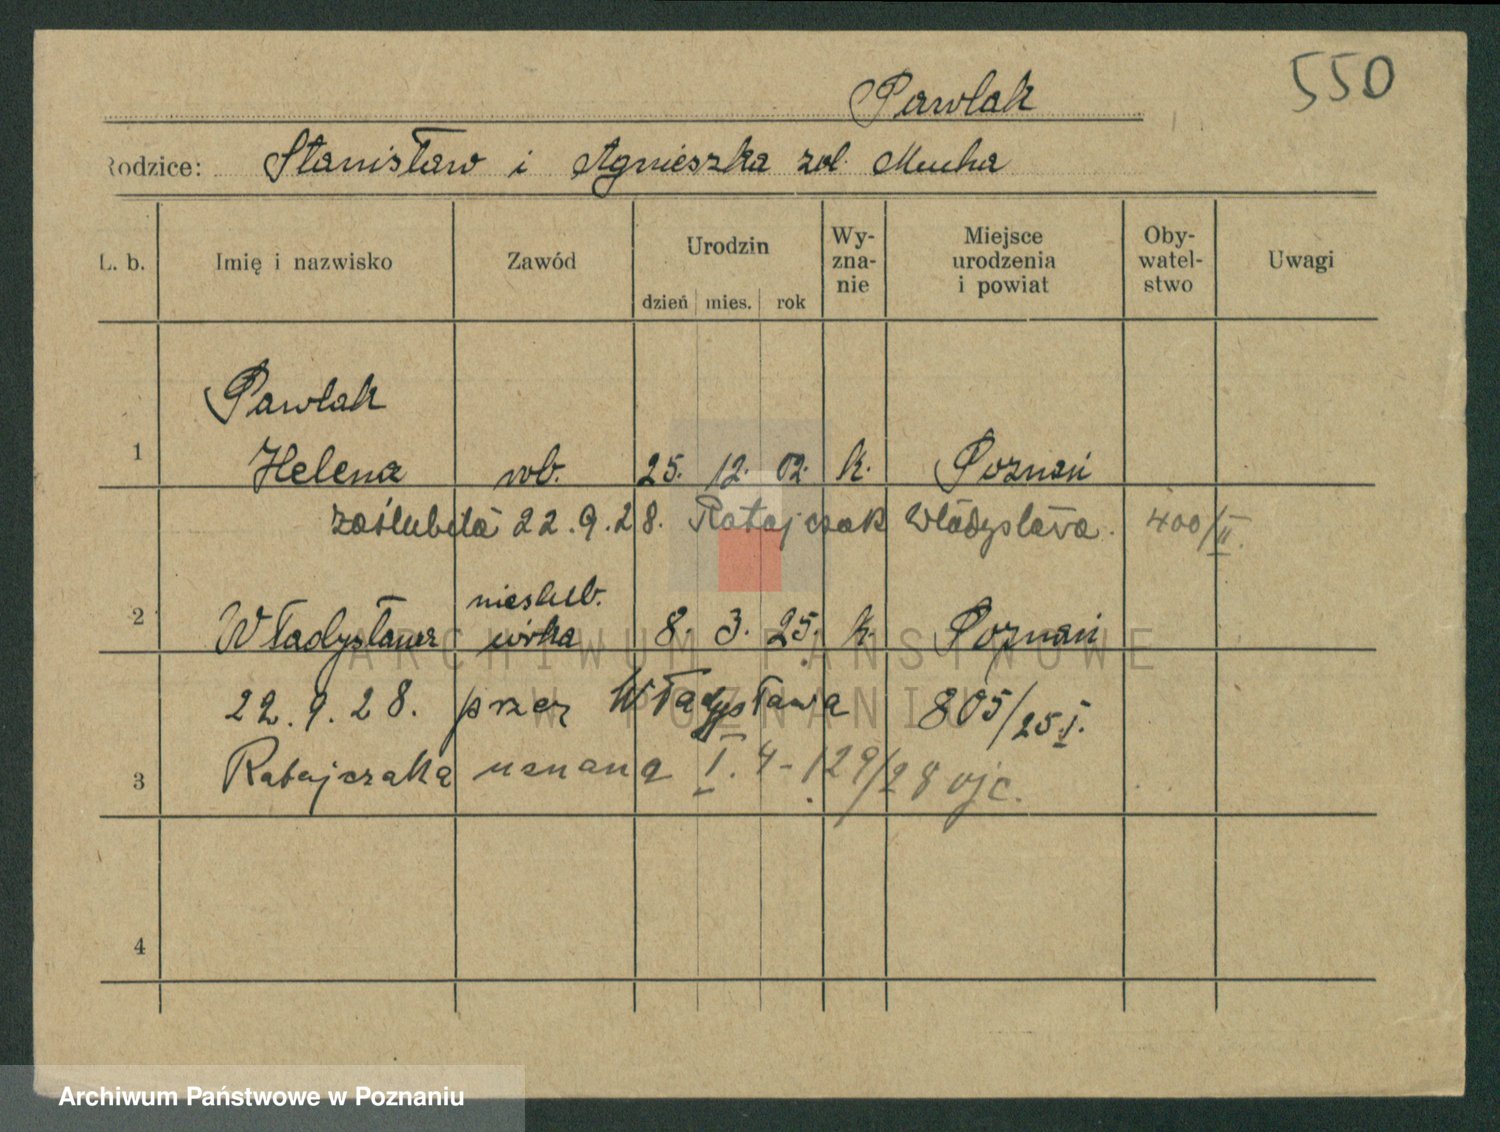 550
Pawlak
Rodzice: Stanisław i Agnieszka zd. Mucha
L. b. Imię i nazwisko Zawód Urodzin dzień mies. rok Wy-zna-nie Miejsce urodzenia i powiat Oby-watel-stwo Uwagi
Pawlak
1 Helena rob. 25. 12. 02. k. Poznań
zaślubiła 22.9.28. Ratajczak Władysława. 400/II.
nieślub.
2 Władysława córka 8. 3. 25. k. Poznań
22.9.28. przez Władysława 805/25.I.
3 Ratajczaka uznana I.4-129/28 ojc.
4
ARCHIWUM PAŃSTWOWE
W POZNANIU
Archiwum Państwowe w Poznaniu